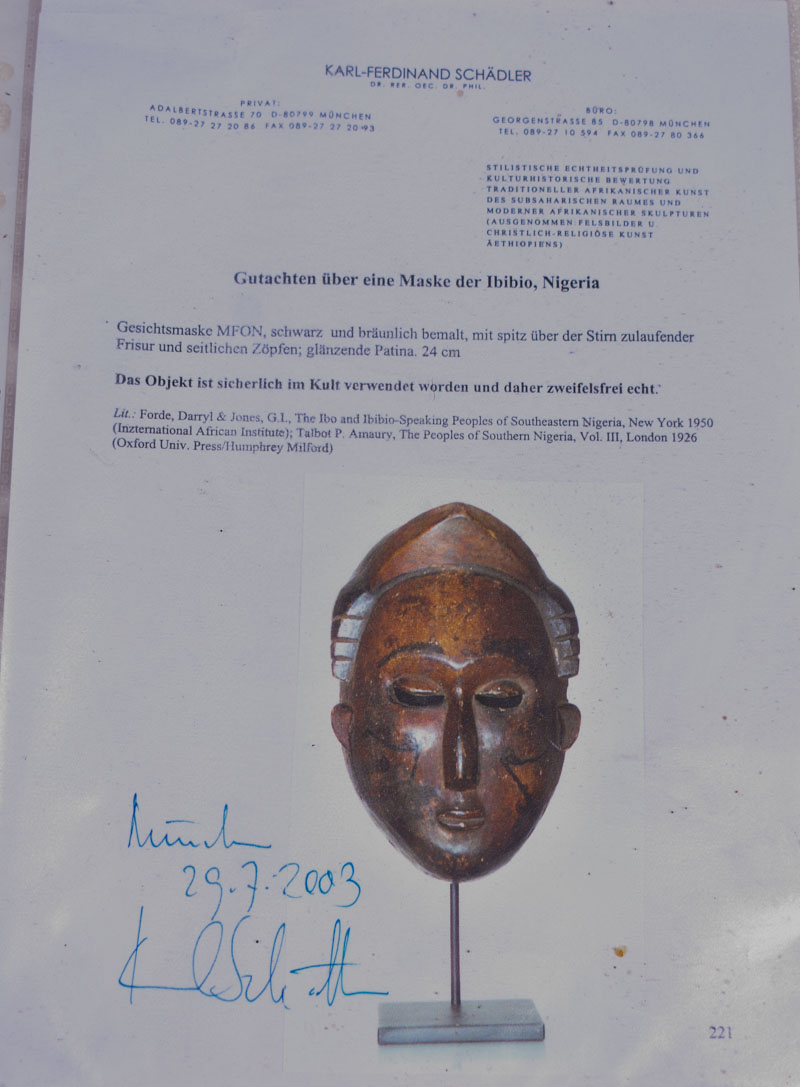 KARL-FERDINAND SCHÄDLER
DR. RER. OEC. DR. PHIL.
PRIVAT:
ADALBERTSTRASSE 70 D-80799 MÜNCHEN
TEL. 089-27 27 20 86 FAX 089-27 27 20 93
BÜRO:
GEORGENSTRASSE 85 D-80798 MÜNCHEN
TEL. 089-27 10 594 FAX 089-27 80 366
STILISTISCHE ECHTHEITSPRÜFUNG UND
KULTURHISTORISCHE BEWERTUNG
TRADITIONELLER AFRIKANISCHER KUNST
DES SUBSAHARISCHEN RAUMES UND
MODERNER AFRIKANISCHER SKULPTUREN
(AUSGENOMMEN FELSBILDER U.
CHRISTLICH-RELIGIÖSE KUNST
ÄETHIOPIENS)
Gutachten über eine Maske der Ibibio, Nigeria
Gesichtsmaske MFON, schwarz und bräunlich bemalt, mit spitz über der Stirn zulaufender
Frisur und seitlichen Zöpfen; glänzende Patina. 24 cm
Das Objekt ist sicherlich im Kult verwendet worden und daher zweifelsfrei echt.
Lit.: Forde, Darryl & Jones, G.I., The Ibo and Ibibio-Speaking Peoples of Southeastern Nigeria, New York 1950
(Inzternational African Institute); Talbot P. Amaury, The Peoples of Southern Nigeria, Vol. III, London 1926
(Oxford Univ. Press/Humphrey Milford)
29.7.2003
221